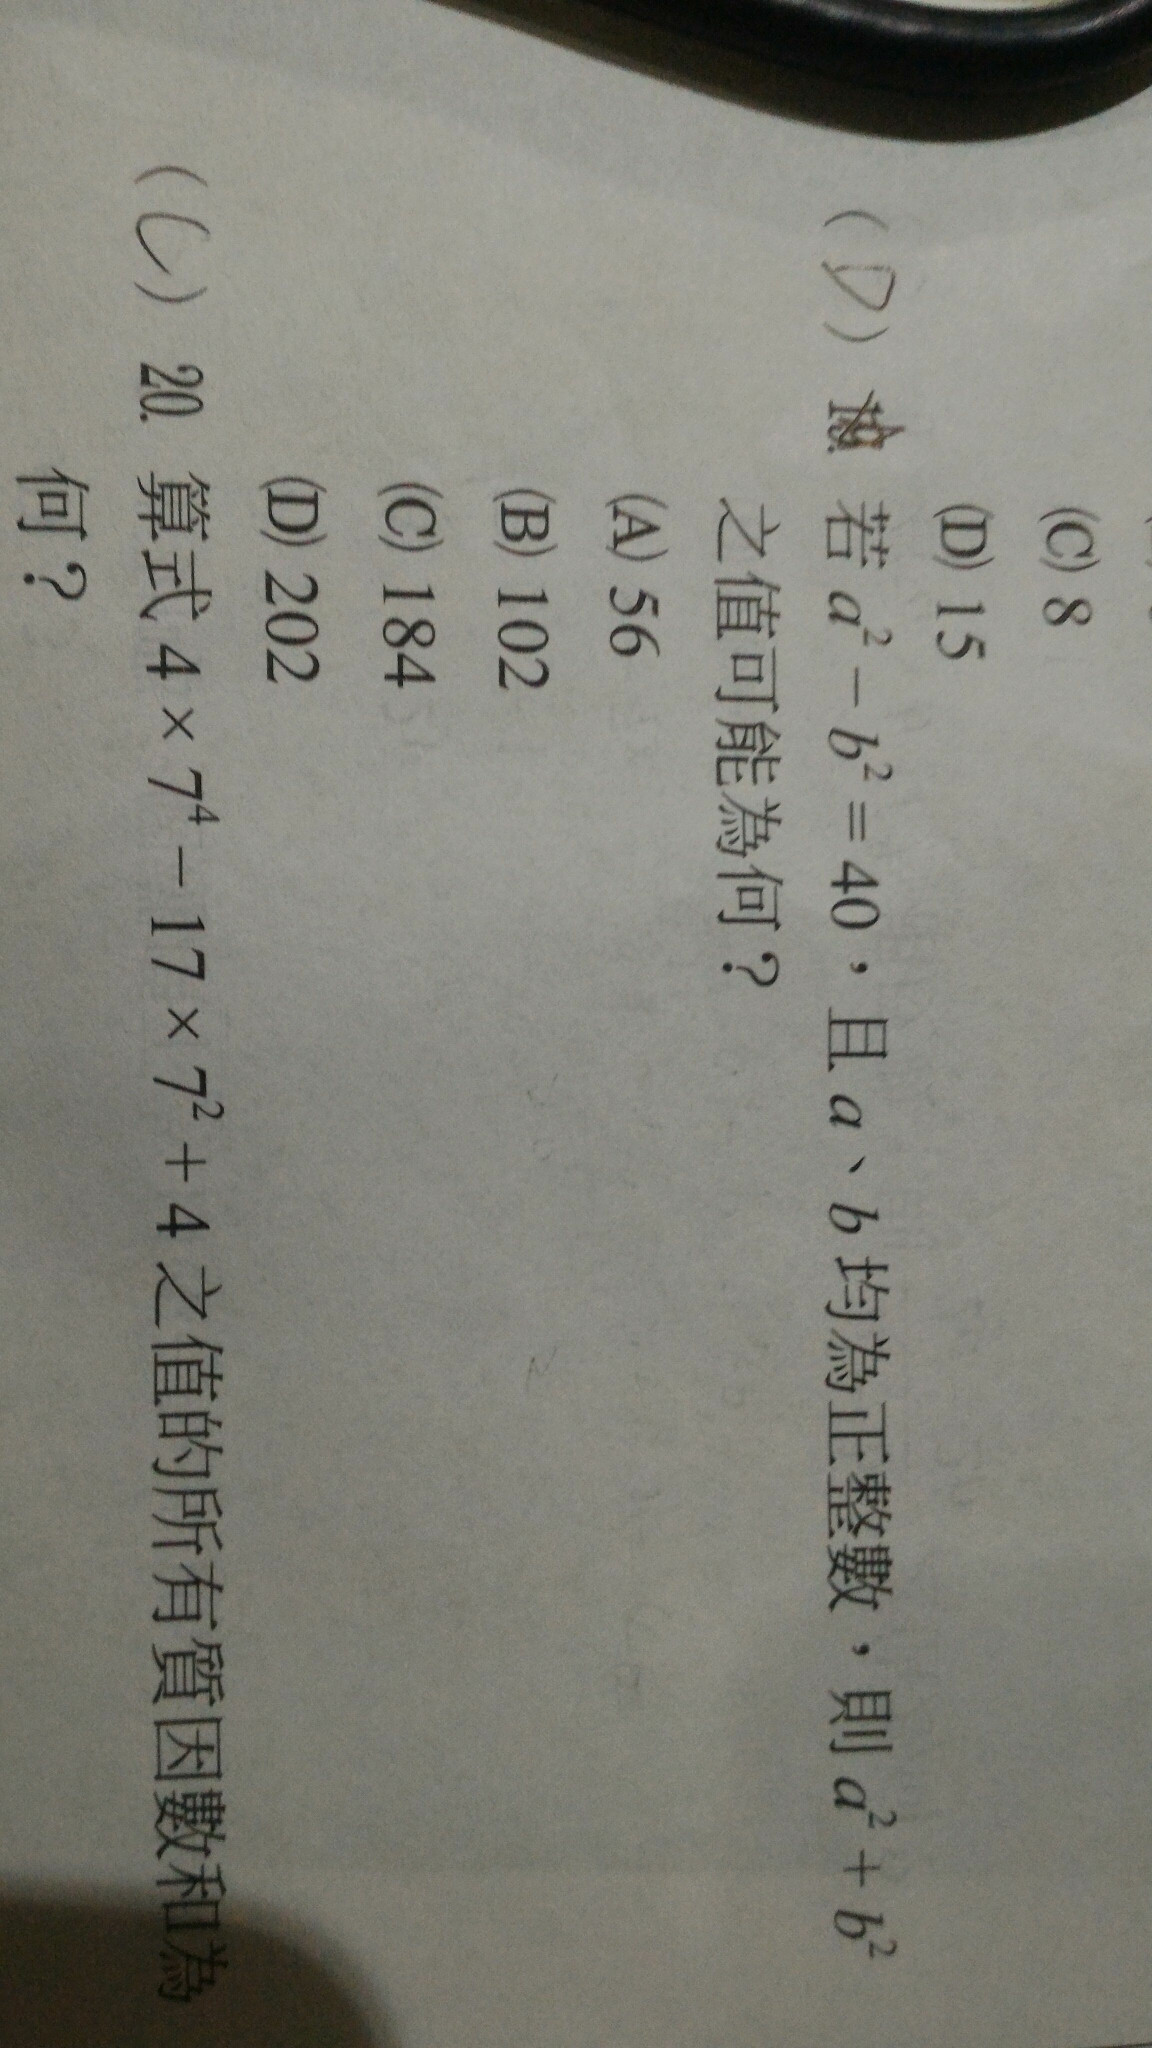 (C) 8
(D) 15
(D) 若 a² − b² = 40，且 a、b 均為正整數，則 a² + b²
之值可能為何？
(A) 56
(B) 102
(C) 184
(D) 202
( ) 20. 算式 4 × 7⁴ − 17 × 7² + 4 之值的所有質因數和為
何？